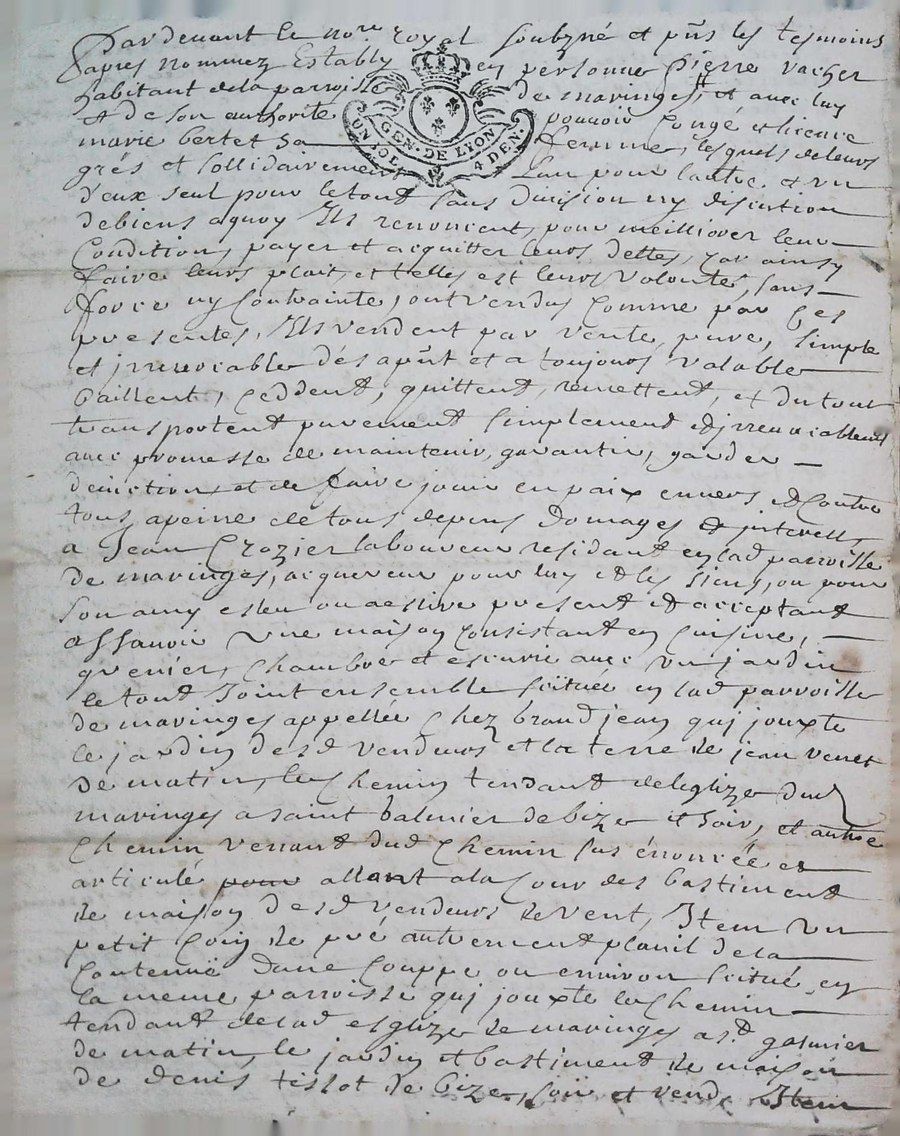 Pardevant le nore royal soubzné et pñts les tesmoins
apres nommez Estably en personne Pierre vacher
habitant dela parroisse de maringes, et avec luy
et de son authorité pouvoir Congé et licence
marie bertet sa femme, lesquels de leurs
GEN. DE LYON
UN SOL. 4 DEN.
grés et sollidairement Lun pour lautre et un
deux seul pour le tout sans division ny discution
debiens aquoy Ils renoncent, pour meilliorer leur
Condition, payer et acquitter leurs dettes, car ainsy
faire leurs plait, et telles est leurs volonté, sans
force ny Contrainte, ont vendus Comme par Ces
presentes, Ils vendent par vente, pure, simple
et irrevocable dés apñt et a toujours valable
baillent, Ceddent, quittent, remettent, et du tout
transportent purement simplement et irrevocablemt
avec promesse de maintenir, garantir, garder
deviction et de faire jouir en paix envers et Contre
tous apeine de tous depens Domages et interests
a Jean Crozier laboureur residant en lad parroisse
de maringes, acquereur pour luy et les siens, ou pour
son amy esleu ou aeslire present et acceptant
assavoir Une maison Consistant en Cuisine,
grenier, Chambre et escurie avec un jardin
le tout Joint ensemble scituée en lad parroisse
de maringes appellée Chez brandjean qui jouxte
le jardin desd vendeurs et la terre de jean
de matin, le Chemin tendant deleglize dud
maringes a saint galmier de bize et soir, et autre
Chemin venant dud Chemin sus énoncée et
articulé pour allant ala Cour des bastiment
de maison desd vendeurs de vent, Item un
petit Coin de pré autrement planil dela
Contenuë Dune Couppe ou environ scitué en
la meme parroisse qui jouxte le Chemin
tendant delad esglize de maringes a st galmier
de matin, le jardin et bastiment de maison
de denis tissot de bize, soir et vend. Item